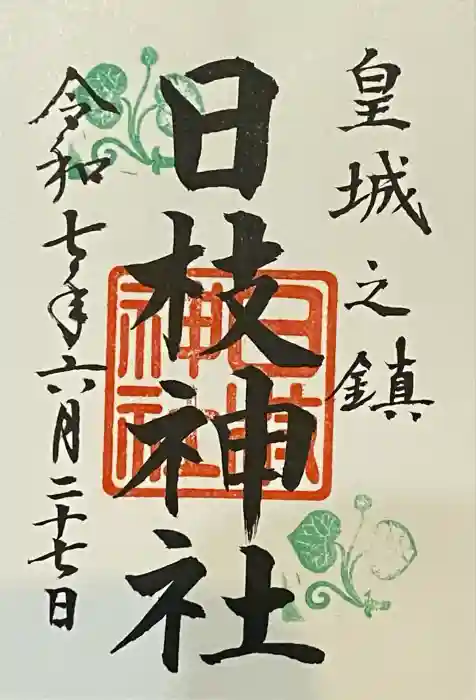 皇城之鎮
日枝神社
日枝神社
令和七年六月二十七日